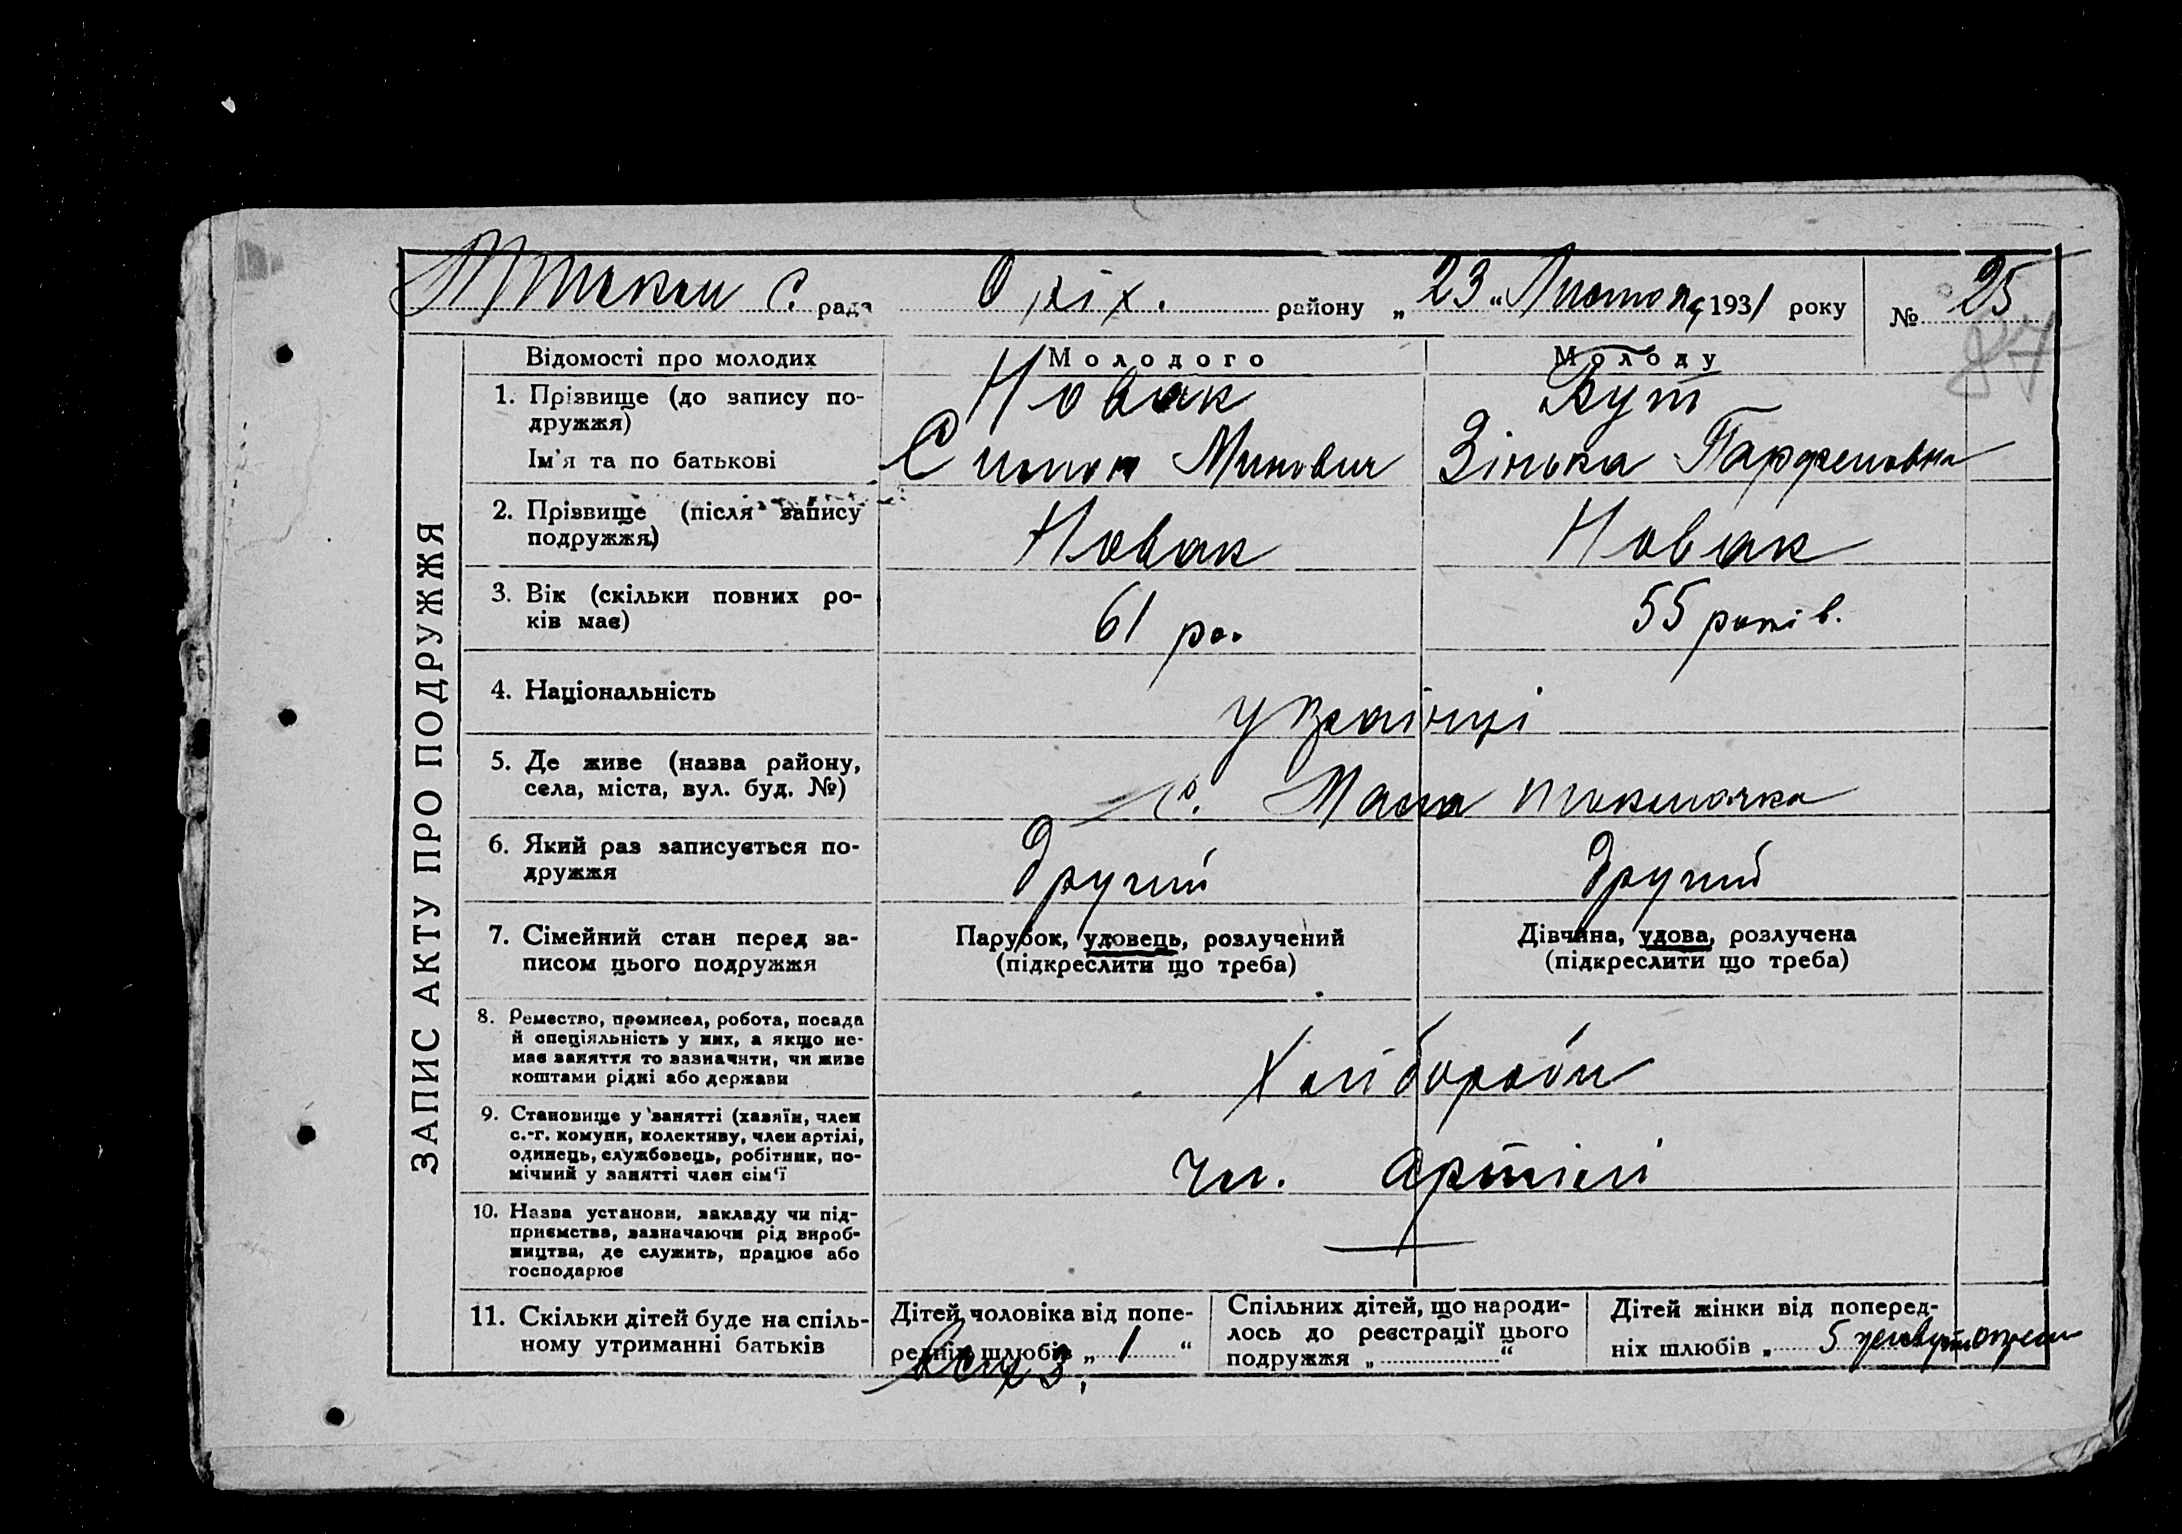 с. рада Оріх. району „23" Листопад 1931 року № 25
87
ЗАПИС АКТУ ПРО ПОДРУЖЖЯ
Відомості про молодих Молодого Молоду
1. Прізвище (до запису по-
дружжя) Новак Кут
Ім'я та по батькові Симон Минович Зінька Парфеновна
2. Прізвище (після запису
подружжя) Новак Новак
3. Вік (скільки повних ро-
ків має) 61 ро. 55 років.
4. Національність українці
5. Де живе (назва району,
села, міста, вул. буд. №) с. Мала Токмачка
6. Який раз записується по-
дружжя другий другий
7. Сімейний стан перед за-
писом цього подружжя
Парубок, удовець, розлучений
(підкреслити що треба)
Дівчина, удова, розлучена
(підкреслити що треба)
8. Ремество, промисел, робота, посада
й спеціяльність у них, а якщо не-
має заняття то зазначити, чи живе
коштами рідні або держави
Хліборби
9. Становище у занятті (хазяїн, член
с.-г. комуни, колективу, член артілі,
одинець, службовець, робітник, по-
мічний у занятті член сім'ї
чл. артілі
10. Назва установи, закладу чи під-
приємства, зазначаючи рід вироб-
ництва, де служить, працює або
господарює
11. Скільки дітей буде на спіль-
ному утриманні батьків
Дітей чоловіка від попе-
редніх шлюбів „ 1 "
Спільних дітей, що народи-
лось до реєстрації цього
подружжя „ "
Дітей жінки від поперед-
ніх шлюбів „ 5